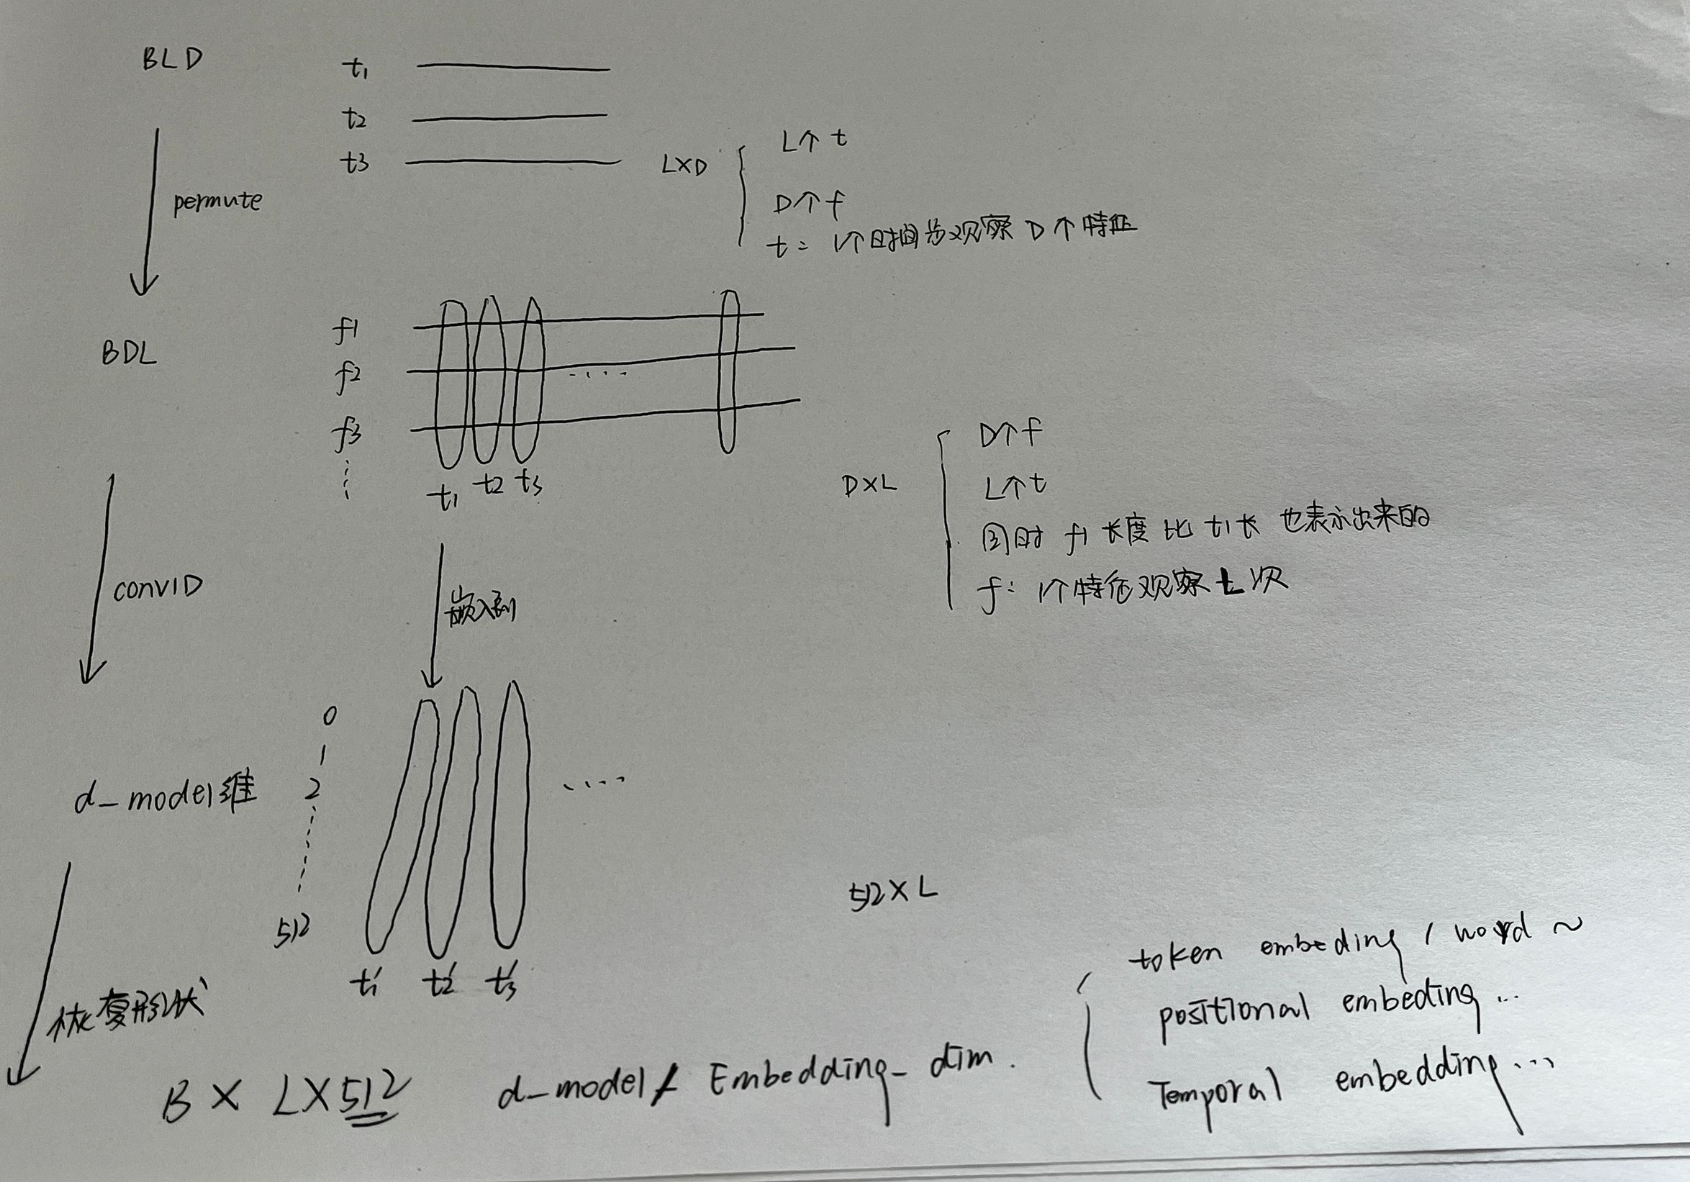 BLD
t1
t2
t3
permute
L×D
L个t
D个f
t: 1个时间步观察 D 个特征
BDL
f1
f2
f3
t1 t2 t3
D×L
D个f
L个t
同时 f1 长度 比 t1 长 也表示出来的
f: 1个特征观察 L 次
conv1D
嵌入到
d_model维
0
2
512
t1' t2' t3'
512×L
恢复形状
B × L×512 d_model / Embedding_dim.
token embeding / word ~
positional embeding ...
Temporal embedding ...